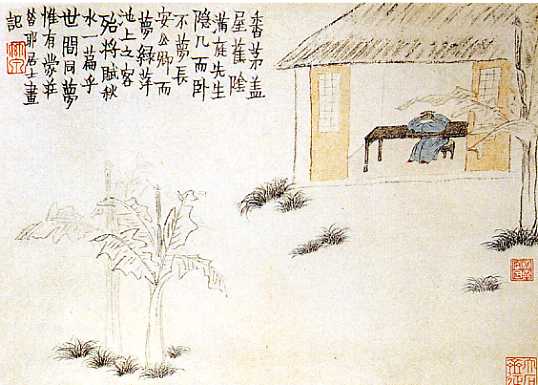 香茅盖
屋蕉陰
滿庭先生
隱几而卧
不夢長
安公卿而
夢綠萍
池上之客
殆將賦秋
水一篇乎
世間同夢
惟有蒙莊
昔耶居士畫
記